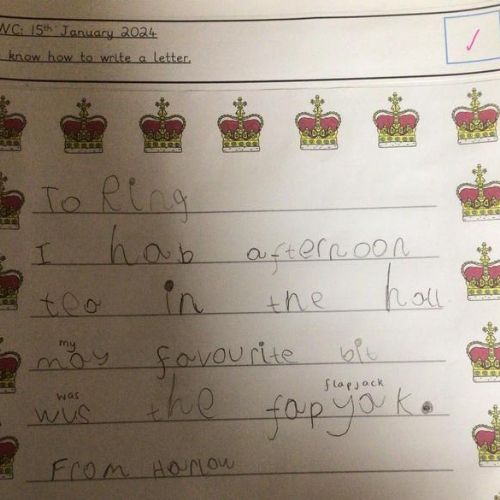 WC: 15th January 2024
know how to write a letter.
To Ring
I hab afternoon
tea in the hall
my
may favourite bit
was flapjack
wus the fapyak.
From Harlow